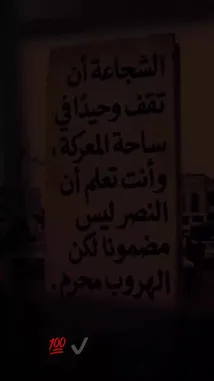 الشجاعة أن
تقف وحيدًا في
ساحة المعركة،
وأنت تعلم أن
النصر ليس
مضمونا لكن
الهروب محرم.
💯✔